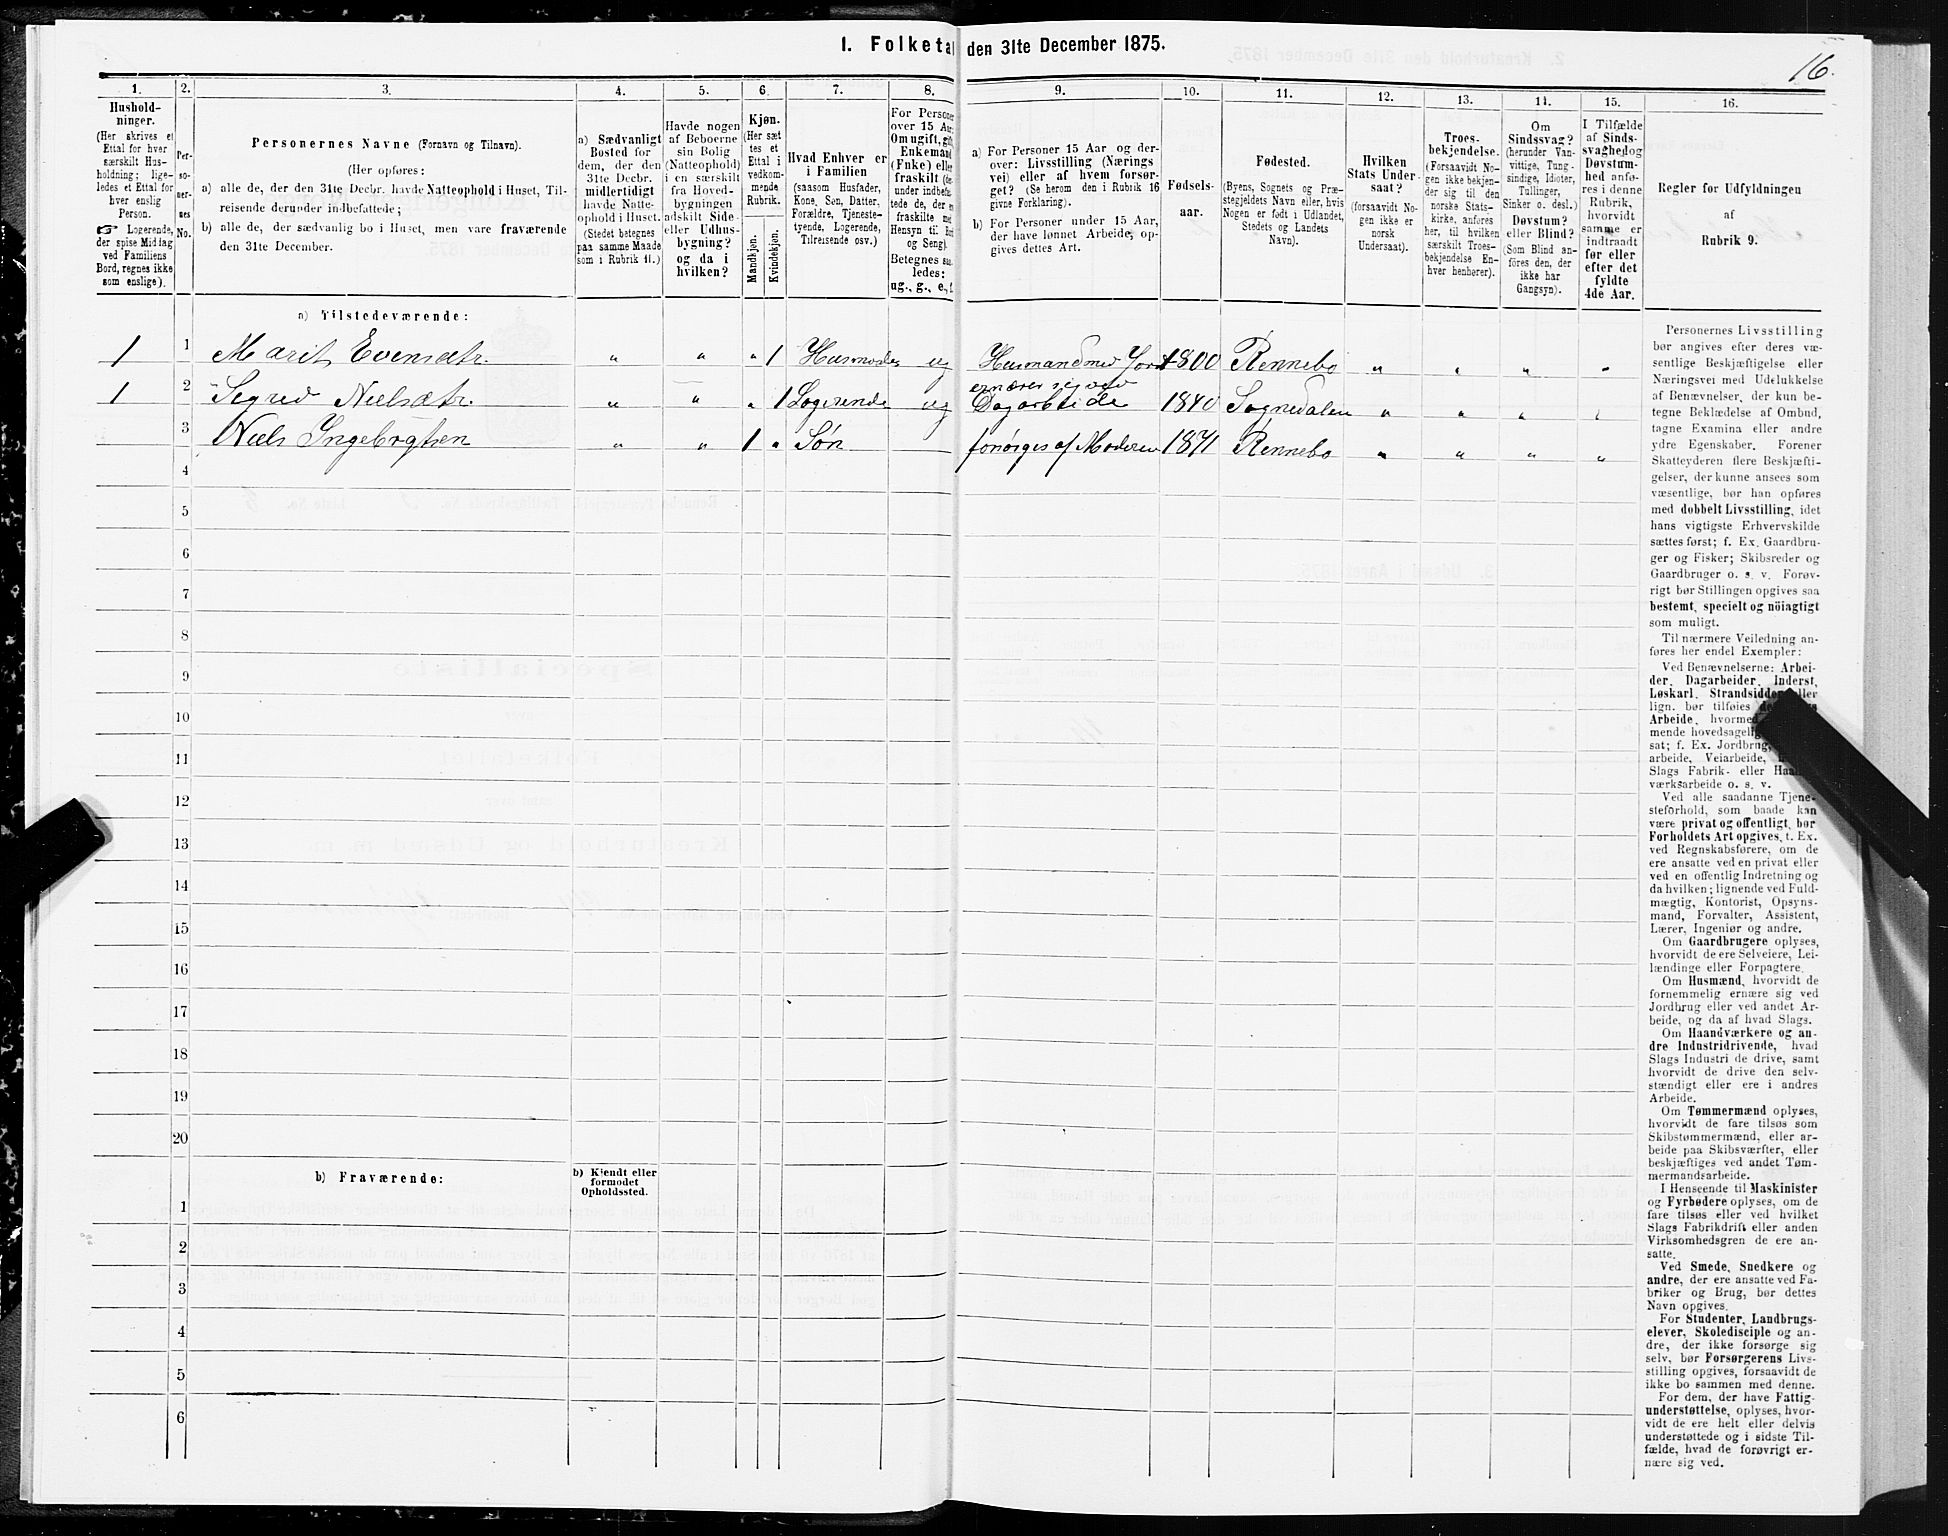 1. Folketa
den 31te December 1875.
16.
1.
2.
3.
4.
5.
6.
7.
8.
9.
10.
11.
12.
13.
14.
15.
16.
Hushold-
ninger.
(Her skrives et
Ettal for hver
særskilt Hus-
holdning; lige-
ledes et Ettal for
hver enslig
Person.
☞ Logerende,
der spise Middag
ved Familiens
Bord, regnes ikke
som enslige).
Per-
so-
ner-
nes
No.
Personernes Navne (Fornavn og Tilnavn).
(Her opføres:
a) alle de, der den 31te Decbr. havde Natteophold i Huset, Til-
reisende derunder indbefattede;
b) alle de, der sædvanlig bo i Huset, men vare fraværende
den 31te December.
a) Sædvanligt
Bosted for
dem, der den
31te Decbr.
midlertidigt
havde Natte-
ophold i Huset.
(Stedet betegnes
paa samme Maade
som i Rubrik 11.)
Havde nogen
af Beboerne
sin Bolig
(Natteophold)
i en særskilt
fra Hoved-
bygningen
adskilt Side-
eller Udhus-
bygning?
og da i
hvilken?
Kjøn.
(Her sæt
tes et
Ettal i
vedkom-
mende
Rubrik.
Mandkjøn.
Kvindekjøn.
Hvad Enhver er
i Familien
(saasom Husfader,
Kone, Søn, Datter,
Forældre, Tjeneste-
tyende, Logerende,
Tilreisende osv.)
For Personer
over 15 Aar:
Om ugift, gift,
Enkemand
(Enke) eller
fraskilt (her-
under indbefat-
tede de, der er
fraskilte med
Hensyn til Bord
og Seng).
Betegnes saa-
ledes:
ug., g., e., f.
a) For Personer 15 Aar og der-
over: Livsstilling (Nærings
vei) eller af hvem forsør-
get? (Se herom den i Rubrik 16
givne Forklaring).
b) For Personer under 15 Aar,
der have lønnet Arbeide, op-
gives dettes Art.
Fødsels-
aar.
Fødested.
(Byens, Sognets og Præ-
stegjeldets Navn eller, hvis
Nogen er født i Udlandet,
Stedets og Landets
Navn).
Hvilken
Stats Under-
saat?
(forsaavidt No-
gen ikke er
norsk
Undersaat).
Troes-
bekjendelse.
(Forsaavidt No-
gen ikke bekjen-
der sig til den
norske Stats-
kirke, anføres
her, til hvilken
særskilt Troes-
bekjendelse En-
hver henhører).
Om
Sindssvag?
(herunder Van-
vittige, Tung-
sindige, Idioter,
Tullinger,
Sinker o. desl.)
Døvstum?
eller Blind?
(Som Blind an-
føres den, der
ikke har
Gangsyn).
I Tilfælde
af Sinds-
svaghed og
Døvstum-
hed anfø-
res i denne
Rubrik,
hvorvidt
samme er
indtraadt
før eller
efter det
fyldte
4de Aar.
Regler for Udfyldningen
af
Rubrik 9.
a) Tilstedeværende:
1 1 Marit Evensdtr. " " " 1 Husmoder ug Husmand med Jord 1800 Rennebo " " " "
1 2 Sigrid Nielsdtr. " " " 1 Logerende ug ernærer sig ved
Dagarbeide 1840 Sognedalen " " " "
3 Niels Ingebrgtsen " " 1 " Søn forsørges af Moderen 1871 Rennebo " " " "
4
5
6
7
8
9
10
11
12
13
14
15
16
17
18
19
20
b) Fraværende:
b) Kjendt eller
formodet
Opholdssted.
1
2
3
4
5
6
Personernes Livsstilling
bør angives efter deres væ-
sentlige Beskjæftigelse eller
Næringsvei med Udelukkelse
af Benævnelser, der kun be-
tegne Beklædelse af Ombud,
tagne Examina eller andre
ydre Egenskaber. Forener
Skatteyderen flere Beskjæfti-
gelser, der kunne ansees som
væsentlige, bør han opføres
med dobbelt Livsstilling, idet
hans vigtigste Erhvervskilde
sættes først; f. Ex. Gaardbru-
ger og Fisker; Skibsreder og
Gaardbruger o. s. v. Forøv-
rigt bør Stillingen opgives saa
bestemt, specielt og nöiagtigt
som muligt.
Til nærmere Veiledning an-
føres her endel Exempler:
Ved Benævnelserne: Arbei-
der, Dagarbeider, Inderst,
Løskarl, Strandsidder eller
lign. bør tilføies
Arbeide, hvormed
mende hovedsagelig
sat; f. Ex. Jordbrug,
arbeide, Veiarbeide,
Slags Fabrik- eller Haand-
værksarbeide o. s. v.
Ved alle saadanne Tjene-
steforhold, som baade kan
være privat og offentligt, bør
Forholdets Art opgives, t. Ex.
ved Regnskabsførere, om de
ere ansatte ved en privat eller
ved en offentlig Indretning og
da hvilken; lignende ved Fuld-
mægtig, Kontorist, Opsyns-
mand, Forvalter, Assistent,
Lærer, Ingeniør og andre.
Om Gaardbrugere oplyses,
hvorvidt de ere Selveiere, Lei-
lændinge eller Forpagtere.
Om Husmænd, hvorvidt de
fornemmelig ernære sig ved
Jordbrug eller ved andet Ar-
beide, og da af hvad Slags.
Om Haandværkere og an-
dre Industridrivende, hvad
Slags Industri de drive, samt
hvorvidt de drive den selv-
stændigt eller ere i andres
Arbeide.
Om Tømmermænd oplyses,
hvorvidt de fare tilsøs som
Skibstømmermænd, eller ar-
beide paa Skibsværfter, eller
beskjæftiges ved andet Tøm-
mermandsarbeide.
I Henseende til Maskinister
og Fyrbødere oplyses, om de
fare tilsøs eller ved hvilket
Slags Fabrikdrift eller anden
Virksomhedsgren de ere an-
satte.
Ved Smede, Snedkere og
andre, der ere ansatte ved Fa-
briker og Brug, bør dettes
Navn opgives.
For Studenter, Landbrugs-
elever, Skoledisciple og an-
dre, der ikke forsørge sig
selv, bør Forsørgerens Livs-
stilling opgives, forsaavidt de
ikke bo sammen med denne.
For dem, der have Fattig-
understøttelse, oplyses, hvor-
vidt de ere helt eller delvis
understøttede og i sidste Til-
fælde, hvad de forøvrigt er-
nære sig ved.